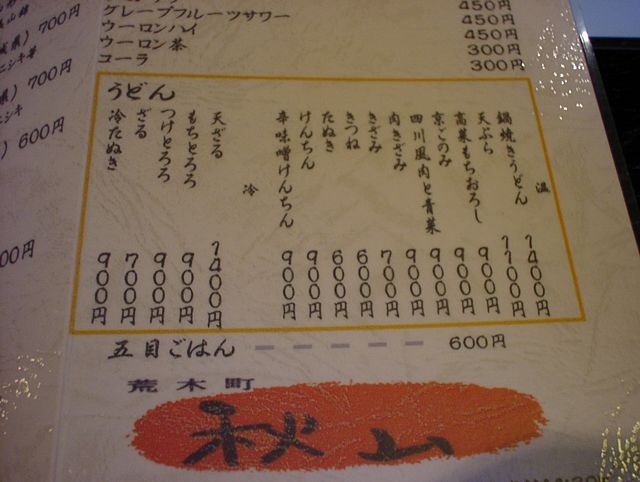 グレープフルーツサワー 450円
ウーロンハイ 450円
ウーロン茶 300円
コーラ 300円
700円
700円
600円
うどん
温
鍋焼きうどん 1400円
天ぷら 1100円
高菜もちおろし 900円
京ごのみ 900円
四川風肉と青菜 900円
肉きざみ 900円
きざみ 700円
きつね 600円
たぬき 600円
けんちん 900円
辛味噌けんちん 900円
冷
天ざる 1400円
もちとろろ 900円
つけとろろ 900円
ざる 700円
冷たぬき 900円
五目ごはん 600円
荒木町
秋山